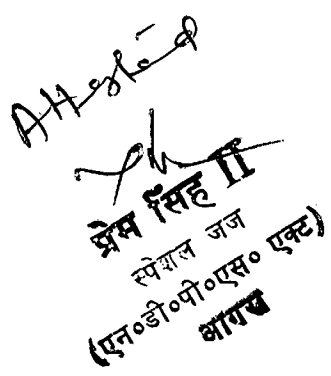 Attested
प्रेम सिंह II
स्पेशल जज
(एन०डी०पी०एस० एक्ट)
आगरा